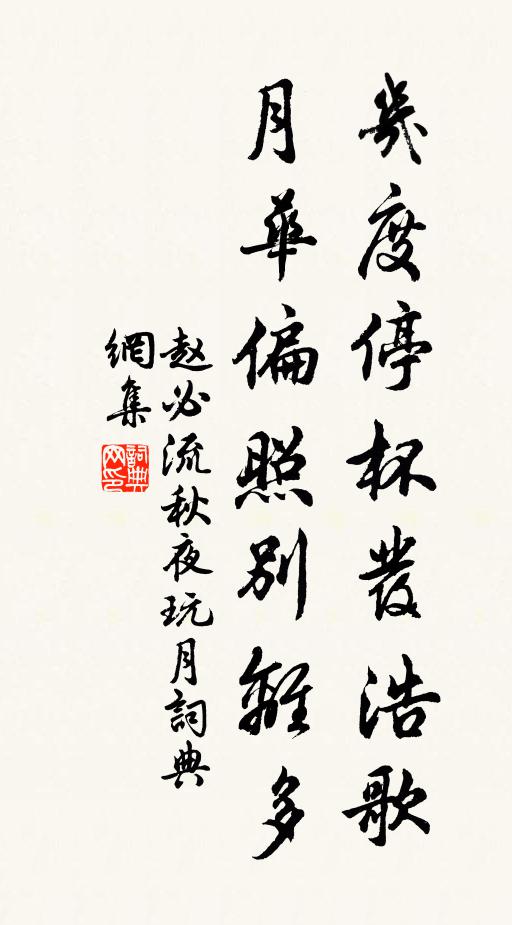 幾度停杯發浩歌
月華偏照別離多
赵必流秋夜玩月詞典
網集
詞典
网印